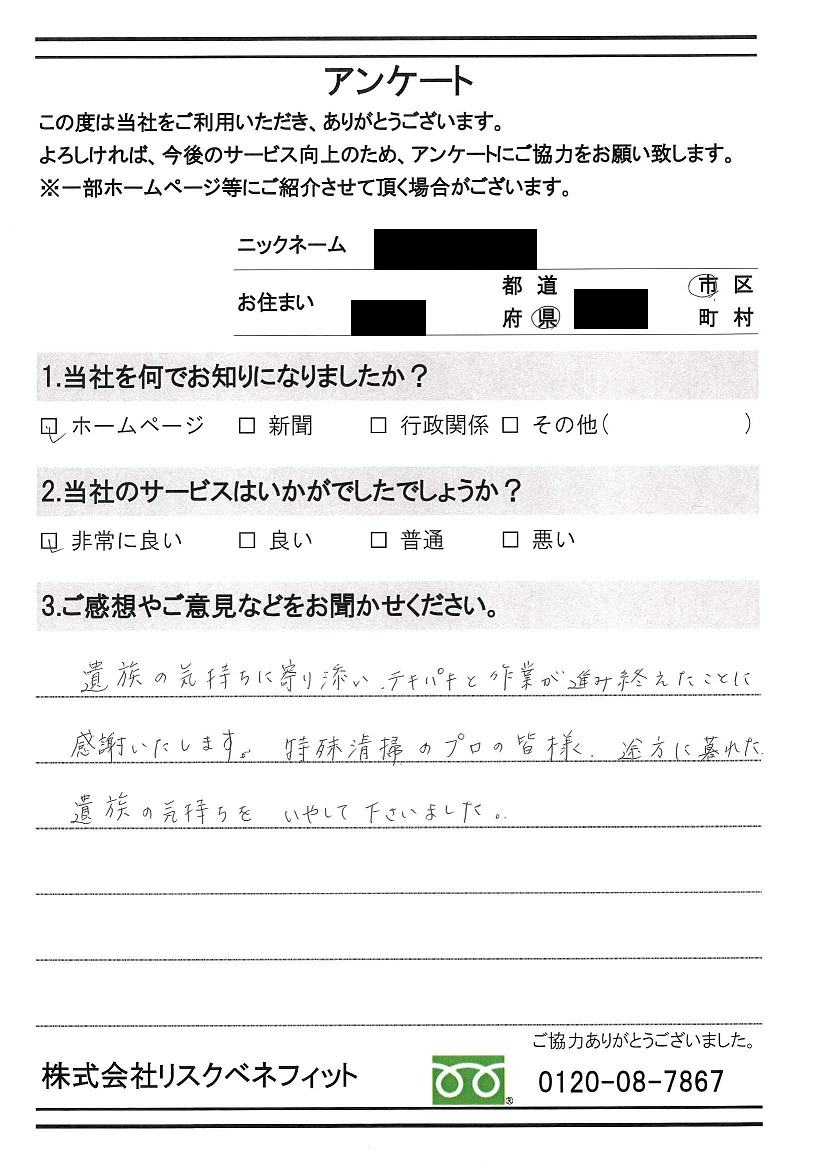 アンケート
この度は当社をご利用いただき、ありがとうございます。
よろしければ、今後のサービス向上のため、アンケートにご協力をお願い致します。
※一部ホームページ等にご紹介させて頂く場合がございます。
ニックネーム
お住まい 都 道 府 県 市 区 町 村
1.当社を何でお知りになりましたか？
☑ ホームページ □ 新聞 □ 行政関係 □ その他( )
2.当社のサービスはいかがでしたでしょうか？
☑ 非常に良い □ 良い □ 普通 □ 悪い
3.ご感想やご意見などをお聞かせください。
遺族の気持ちに寄り添い、テキパキと作業が進み終えたことに
感謝いたします。特殊清掃のプロの皆様、途方に暮れた
遺族の気持ちをいやして下さいました。
ご協力ありがとうございました。
株式会社リスクベネフィット 0120-08-7867